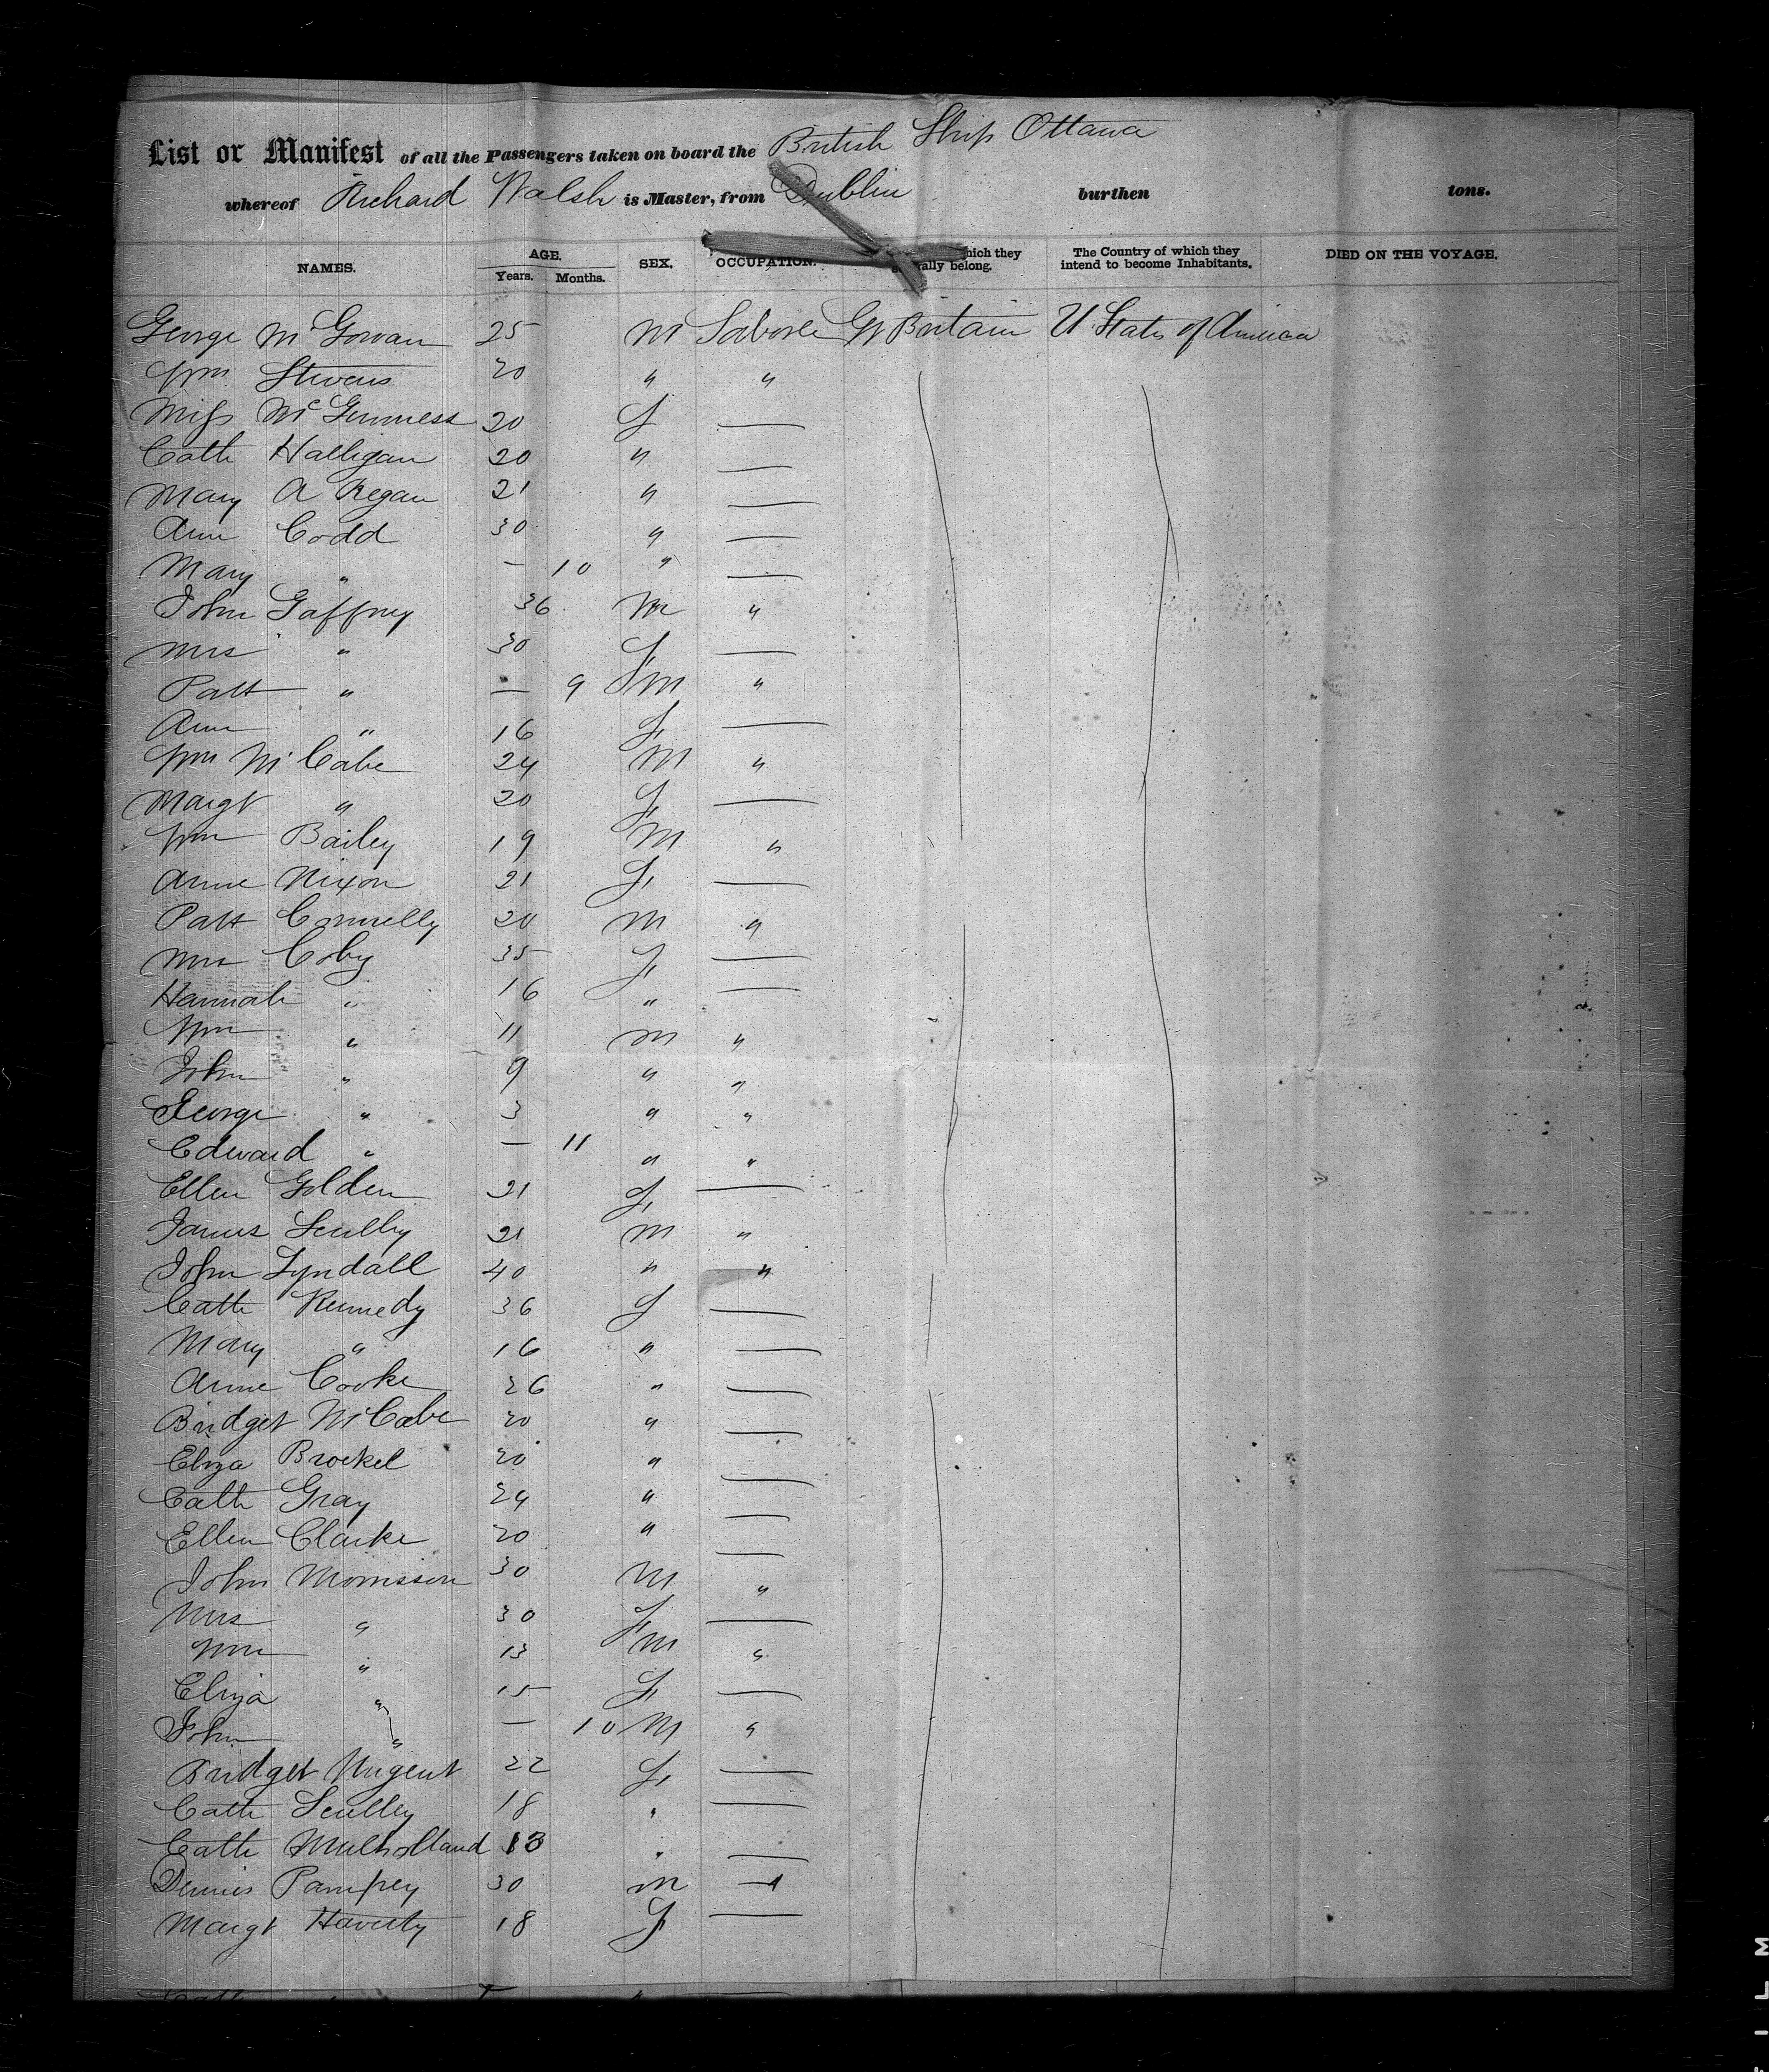 List or Manifest of all the Passengers taken on board the British Ship Ottawa
whereof Richard Walsh is Master, from Dublin burthen tons.
NAMES. AGE. Years. Months. SEX. OCCUPATION. which they belong. The Country of which they intend to become Inhabitants. DIED ON THE VOYAGE.
George McGowan 25 M Laborer Gt Britain U States of America
Wm Stevens 20 " "
Miss McGuinness 20 F —
Cath Halligan 20 " —
Mary A Regan 21 " —
Ann Codd 30 " —
Mary " — 10 " —
John Gaffney 36 M "
Mrs " 30 F —
Patt " — 9 M "
Ann " 16 F —
Wm McCabe 24 M "
Margt " 20 F —
Wm Bailey 19 M "
Anne Nixon 21 F —
Patt Connelly 20 M "
Mrs Coby 35 F —
Hannah " 16 " —
Wm " 11 M "
John " 9 " "
George " 3 " "
Edward " — 11 " "
Ellen Golden 21 F —
James Scully 21 M "
John Lyndall 40 " "
Cath Kennedy 36 F —
Mary " 16 " —
Anne Cooke 26 " —
Bridget McCabe 20 " —
Eliza Brockel 20 " —
Cath Gray 24 " —
Ellen Clarke 20 " —
John Morrisson 30 M "
Mrs " 30 F —
Wm " 13 M "
Eliza " 15 F —
John " — 10 M "
Bridget Nugent 22 F —
Cath Sculley 18 " —
Cath Mulholland 18 " —
Dennis Pampey 30 M —
Margt Haverty 18 F —